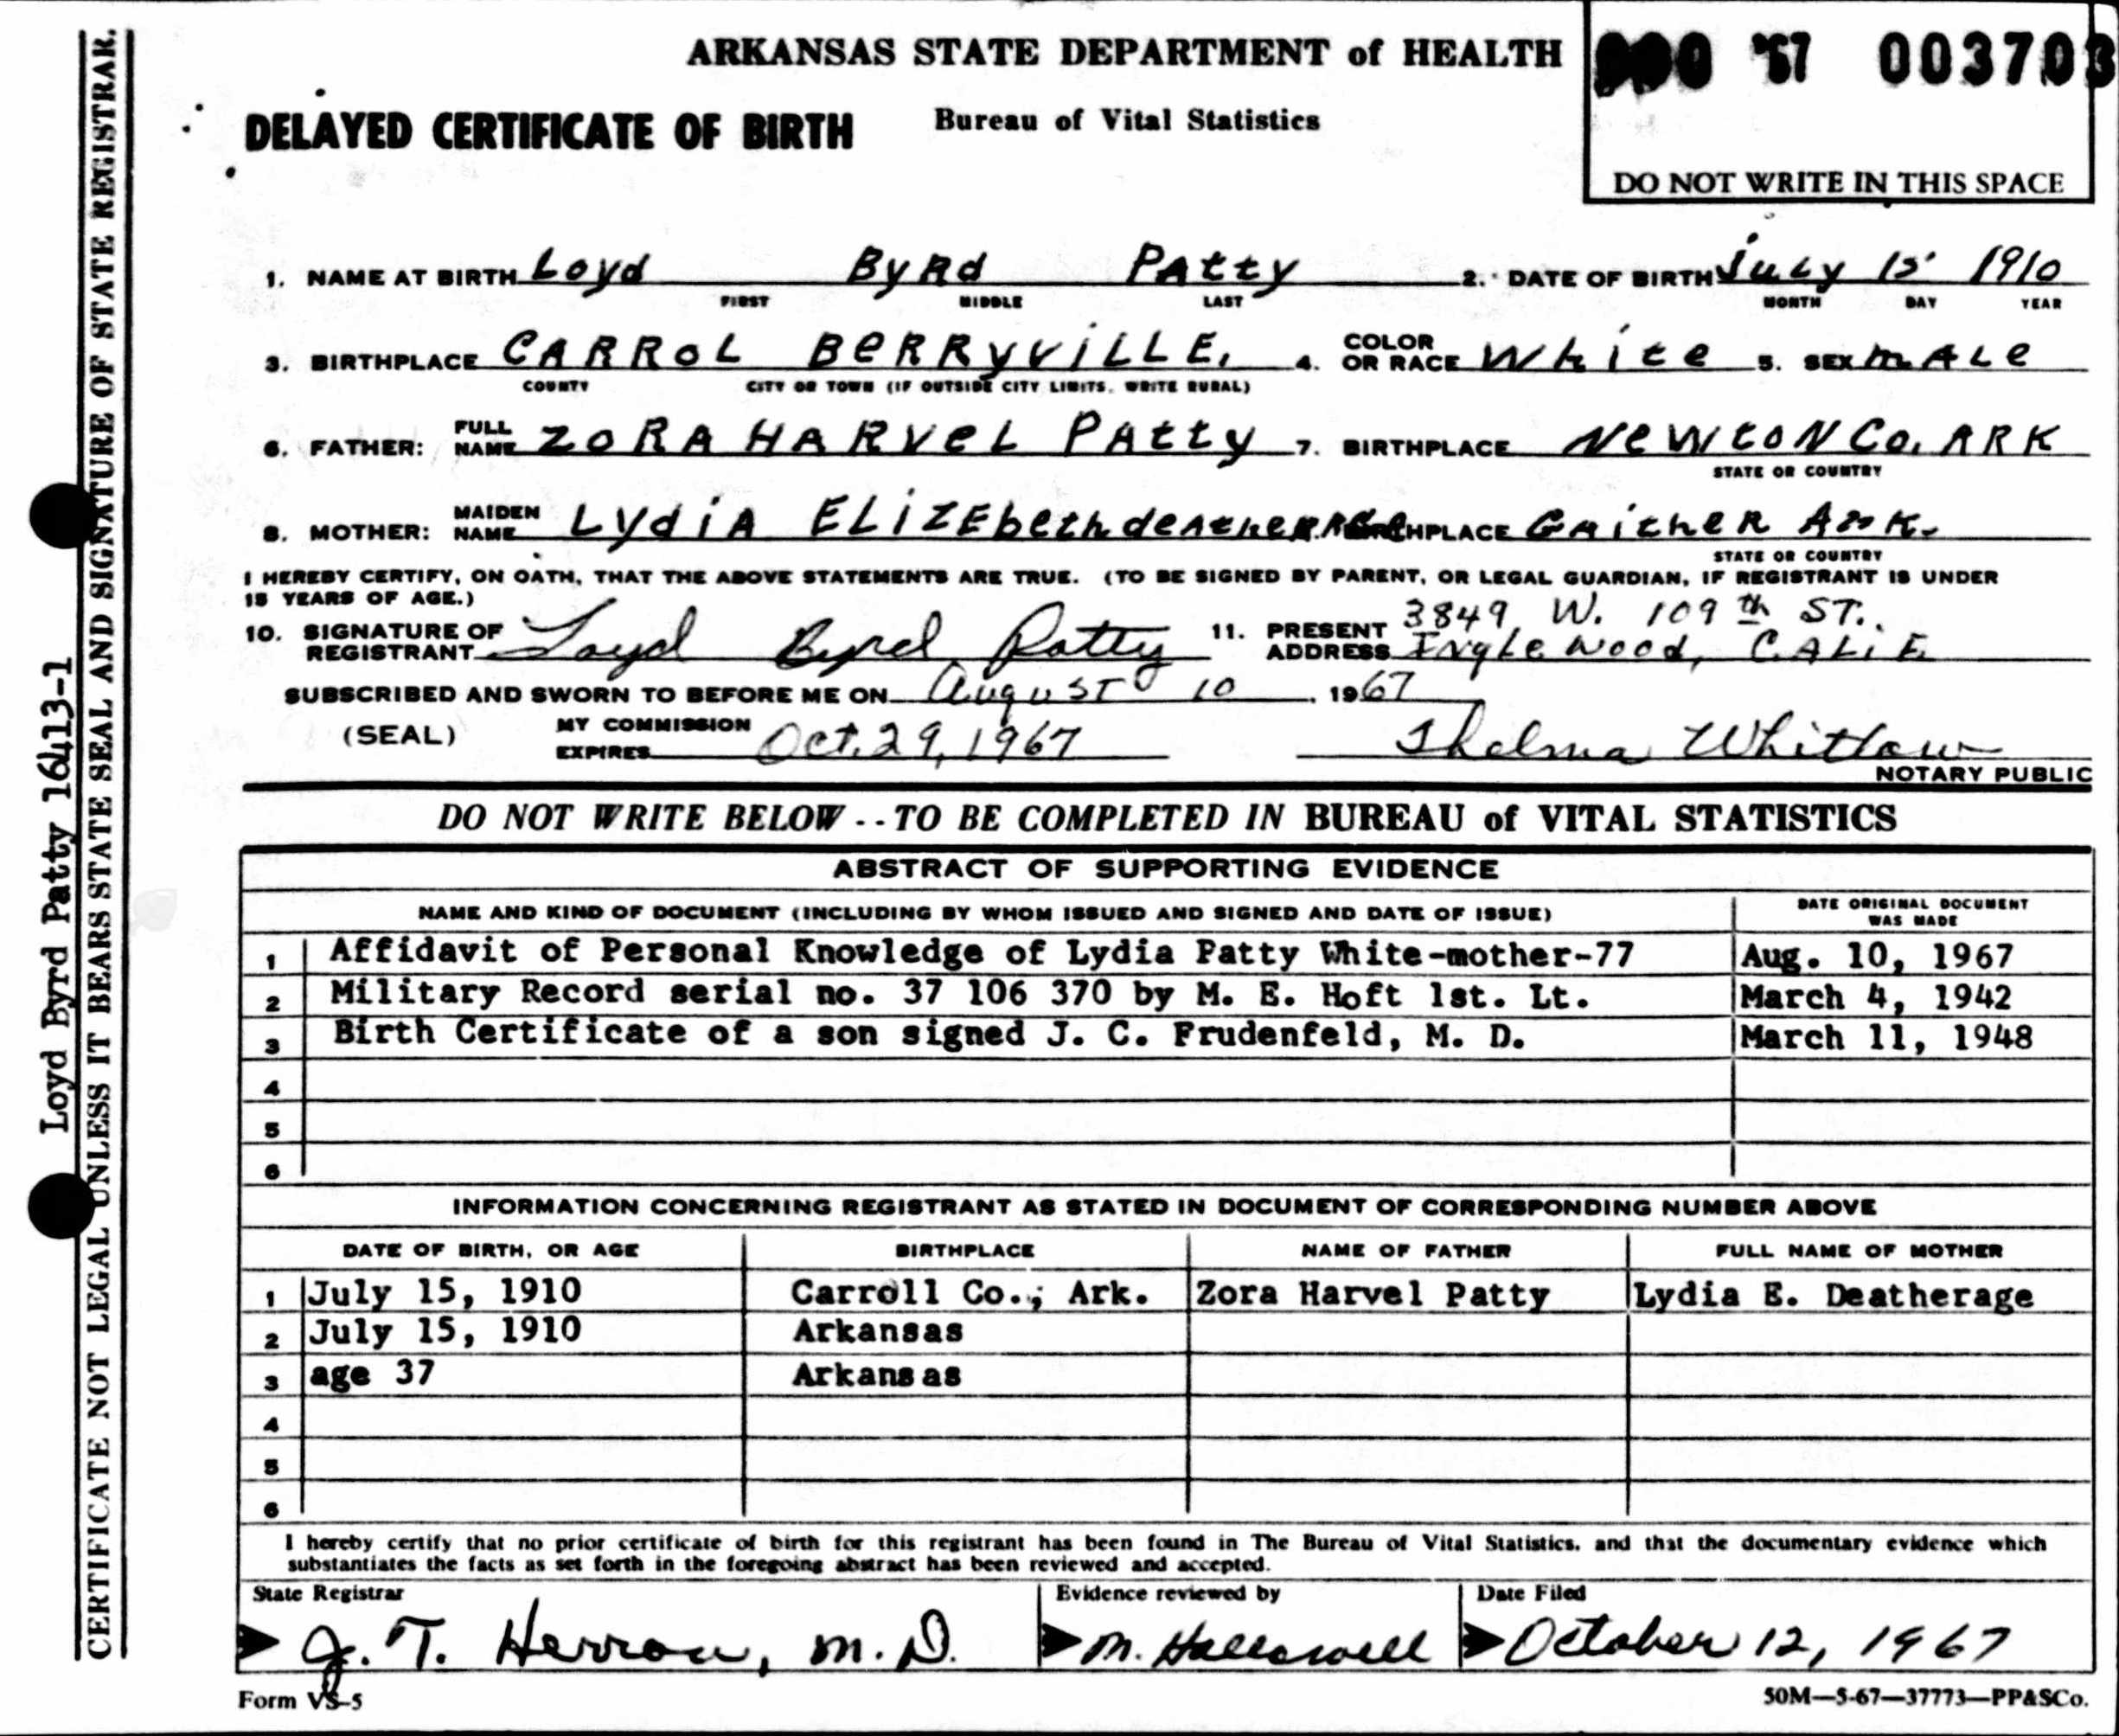 ARKANSAS STATE DEPARTMENT of HEALTH
'67 003703
DELAYED CERTIFICATE OF BIRTH
Bureau of Vital Statistics
DO NOT WRITE IN THIS SPACE
1. NAME AT BIRTH Loyd Byrd Patty 2. DATE OF BIRTH July 15 1910
FIRST MIDDLE LAST MONTH DAY YEAR
3. BIRTHPLACE CARROL BERRYVILLE, 4. COLOR OR RACE White 5. SEX MALE
COUNTY CITY OR TOWN (IF OUTSIDE CITY LIMITS, WRITE RURAL)
6. FATHER: FULL NAME ZORA HARVEL PAtty 7. BIRTHPLACE NEWTON Co. ARK
STATE OR COUNTRY
8. MOTHER: MAIDEN NAME LydiA ELIZEbeth deatherage BIRTHPLACE GAitheR ARK.
STATE OR COUNTRY
I HEREBY CERTIFY, ON OATH, THAT THE ABOVE STATEMENTS ARE TRUE. (TO BE SIGNED BY PARENT, OR LEGAL GUARDIAN, IF REGISTRANT IS UNDER
18 YEARS OF AGE.)
10. SIGNATURE OF REGISTRANT Loyd Byrd Patty 11. PRESENT ADDRESS 3849 W. 109th ST.
Inglewood, CALIF.
SUBSCRIBED AND SWORN TO BEFORE ME ON August 10, 1967
(SEAL) MY COMMISSION EXPIRES Oct. 29, 1967 Thelma Whitlow
NOTARY PUBLIC
DO NOT WRITE BELOW -- TO BE COMPLETED IN BUREAU of VITAL STATISTICS
ABSTRACT OF SUPPORTING EVIDENCE
NAME AND KIND OF DOCUMENT (INCLUDING BY WHOM ISSUED AND SIGNED AND DATE OF ISSUE) DATE ORIGINAL DOCUMENT WAS MADE
1 Affidavit of Personal Knowledge of Lydia Patty White-mother-77 Aug. 10, 1967
2 Military Record serial no. 37 106 370 by M. E. Hoft 1st. Lt. March 4, 1942
3 Birth Certificate of a son signed J. C. Frudenfeld, M. D. March 11, 1948
4
5
6
INFORMATION CONCERNING REGISTRANT AS STATED IN DOCUMENT OF CORRESPONDING NUMBER ABOVE
DATE OF BIRTH, OR AGE BIRTHPLACE NAME OF FATHER FULL NAME OF MOTHER
1 July 15, 1910 Carroll Co.; Ark. Zora Harvel Patty Lydia E. Deatherage
2 July 15, 1910 Arkansas
3 age 37 Arkansas
4
5
6
I hereby certify that no prior certificate of birth for this registrant has been found in The Bureau of Vital Statistics, and that the documentary evidence which
substantiates the facts as set forth in the foregoing abstract has been reviewed and accepted.
State Registrar Evidence reviewed by Date Filed
J. T. Herron, M.D. M. Hallowell October 12, 1967
Form VS-5 50M—5-67—37773—PP&SCo.
Loyd Byrd Patty 16413-1
CERTIFICATE NOT LEGAL UNLESS IT BEARS STATE SEAL AND SIGNATURE OF STATE REGISTRAR.